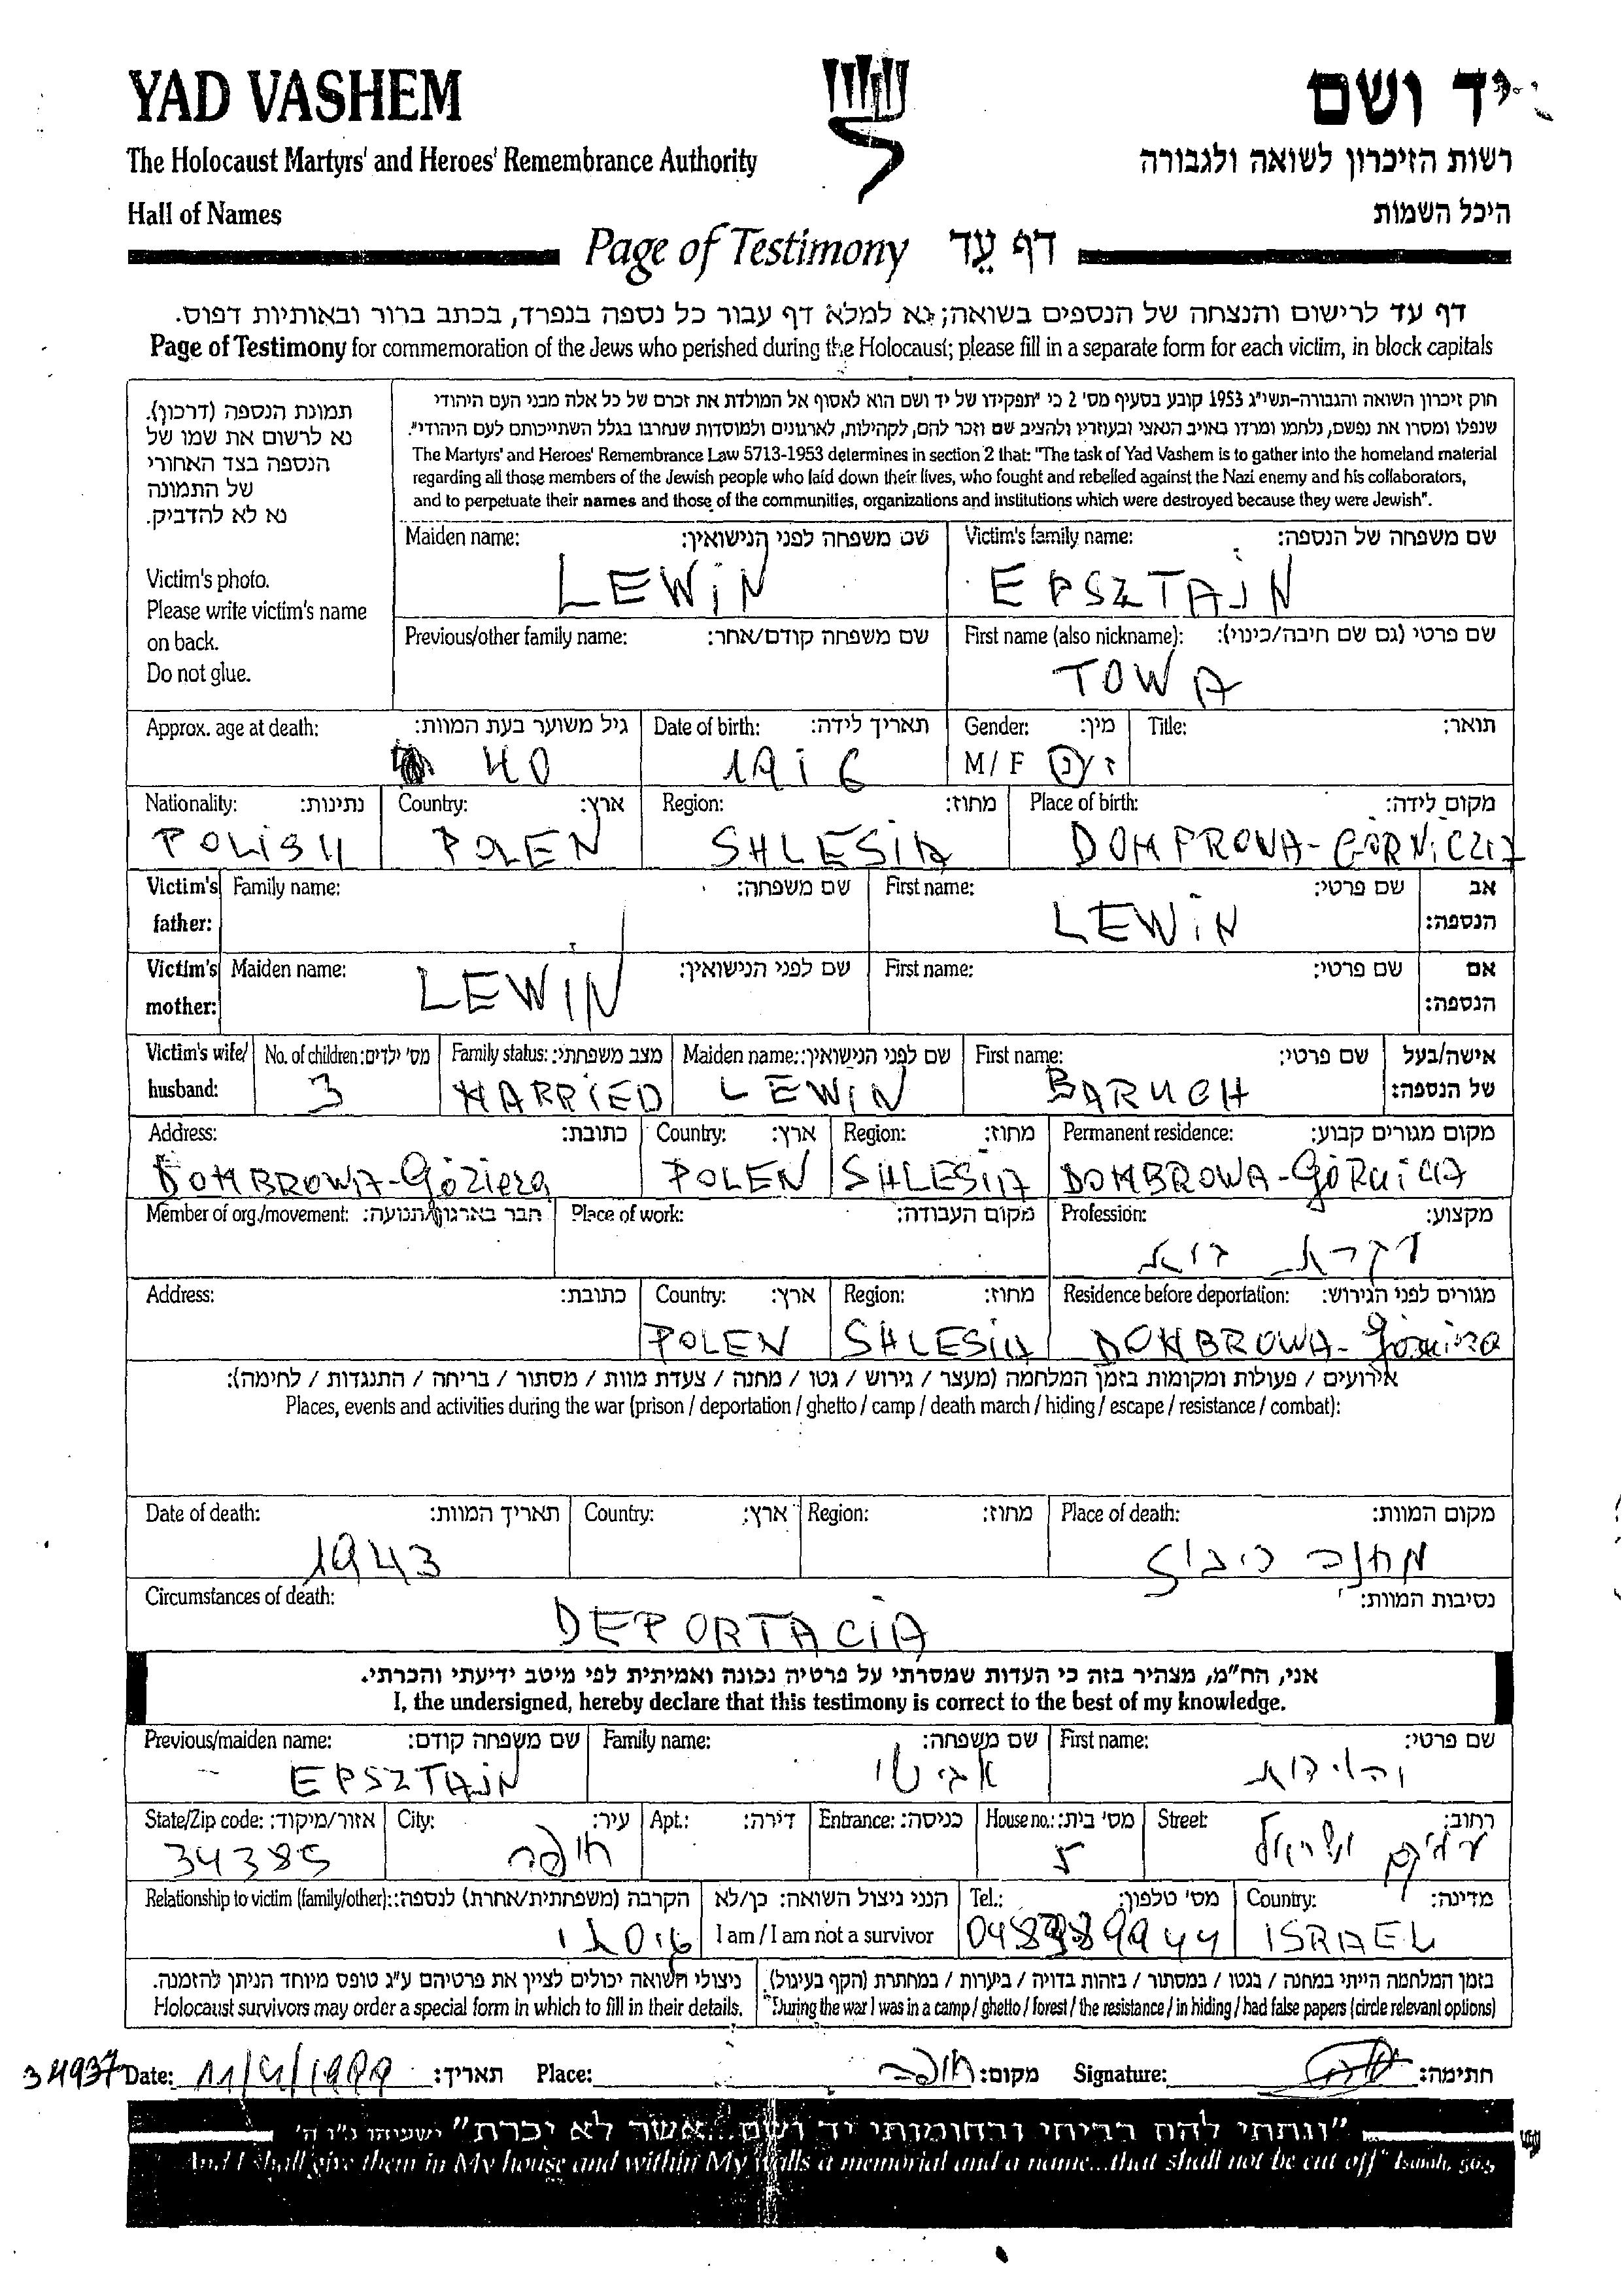 YAD VASHEM
יד ושם
The Holocaust Martyrs' and Heroes' Remembrance Authority
רשות הזיכרון לשואה ולגבורה
Hall of Names
היכל השמות
Page of Testimony דף עֵד
דף עד לרישום והנצחה של הנספים בשואה; נא למלא דף עבור כל נספה בנפרד, בכתב ברור ובאותיות דפוס.
Page of Testimony for commemoration of the Jews who perished during the Holocaust; please fill in a separate form for each victim, in block capitals
תמונת הנספה (דרכון).
נא לרשום את שמו של
הנספה בצד האחורי
של התמונה
נא לא להדביק.
Victim's photo.
Please write victim's name
on back.
Do not glue.
חוק זיכרון השואה והגבורה-תשי"ג 1953 קובע בסעיף מס' 2 כי "תפקידו של יד ושם הוא לאסוף אל המולדת את זכרם של כל אלה מבני העם היהודי
שנפלו ומסרו את נפשם, נלחמו ומרדו באויב הנאצי ובעוזריו ולהציב שם וזכר להם, לקהילות, לארגונים ולמוסדות שנחרבו בגלל השתייכותם לעם היהודי".
The Martyrs' and Heroes' Remembrance Law 5713-1953 determines in section 2 that: "The task of Yad Vashem is to gather into the homeland material
regarding all those members of the Jewish people who laid down their lives, who fought and rebelled against the Nazi enemy and his collaborators,
and to perpetuate their names and those of the communities, organizations and institutions which were destroyed because they were Jewish".
Maiden name: שם משפחה לפני הנישואין: Victim's family name: שם משפחה של הנספה:
LEWIN EPSZTAJN
Previous/other family name: שם משפחה קודם/אחר: First name (also nickname): שם פרטי (גם שם חיבה/כינוי):
TOWA
Approx. age at death: גיל משוער בעת המוות: Date of birth: תאריך לידה: Gender: מין: Title: תואר:
40 1916 M / F ז/נ
Nationality: נתינות: Country: ארץ: Region: מחוז: Place of birth: מקום לידה:
POLISH POLEN SHLESIA DOMPROWA-GÓRNICZA
Victim's father: Family name: שם משפחה: First name: שם פרטי: אב הנספה:
LEWIN
Victim's mother: Maiden name: שם לפני הנישואין: First name: שם פרטי: אם הנספה:
LEWIN
Victim's wife/ husband: No. of children: מס' ילדים: Family status: מצב משפחתי: Maiden name: שם לפני הנישואין: First name: שם פרטי: אישה/בעל של הנספה:
3 MARRIED LEWIN BARUCH
Address: כתובת: Country: ארץ: Region: מחוז: Permanent residence: מקום מגורים קבוע:
DOMBROWA- POLEN SHLESIA DOMBROWA-
Member of org./movement: חבר בארגון/תנועה: Place of work: מקום העבודה: Profession: מקצוע:
Address: כתובת: Country: ארץ: Region: מחוז: Residence before deportation: מגורים לפני הגירוש:
POLEN SHLESIA DOMBROWA-
אירועים / פעולות ומקומות בזמן המלחמה (מעצר / גירוש / גטו / מחנה / צעדת מוות / מסתור / בריחה / התנגדות / לחימה):
Places, events and activities during the war (prison / deportation / ghetto / camp / death march / hiding / escape / resistance / combat):
Date of death: תאריך המוות: Country: ארץ: Region: מחוז: Place of death: מקום המוות:
1943 מחנה ריכוז
Circumstances of death: נסיבות המוות:
DEPORTACIA
אני, הח"מ, מצהיר בזה כי העדות שמסרתי על פרטיה נכונה ואמיתית לפי מיטב ידיעתי והכרתי.
I, the undersigned, hereby declare that this testimony is correct to the best of my knowledge.
Previous/maiden name: שם משפחה קודם: Family name: שם משפחה: First name: שם פרטי:
EPSZTAJN
State/Zip code: אזור/מיקוד: City: עיר: Apt.: דירה: Entrance: כניסה: House no.: מס' בית: Street: רחוב:
34385 חיפה 5
Relationship to victim (family/other): הקרבה (משפחתית/אחרת) לנספה: הנני ניצול השואה: כן/לא Tel.: מס' טלפון: Country: מדינה:
I am / I am not a survivor ISRAEL
ניצולי השואה יכולים לציין את פרטיהם ע"ג טופס מיוחד הניתן להזמנה.
Holocaust survivors may order a special form in which to fill in their details.
בזמן המלחמה הייתי במחנה / בגטו / במסתור / בזהות בדויה / ביערות / במחתרת (הקף בעיגול).
During the war I was in a camp / ghetto / forest / the resistance / in hiding / had false papers (circle relevant options)
34937 Date: 11/4/1999 תאריך: Place: חיפה מקום: Signature: חתימה:
"ונתתי להם בביתי ובחומותי יד ושם...אשר לא יכרת" ישעיהו נ"ו ה'
And I shall give them in My house and within My walls a memorial and a name...that shall not be cut off" Isaiah, 56:5